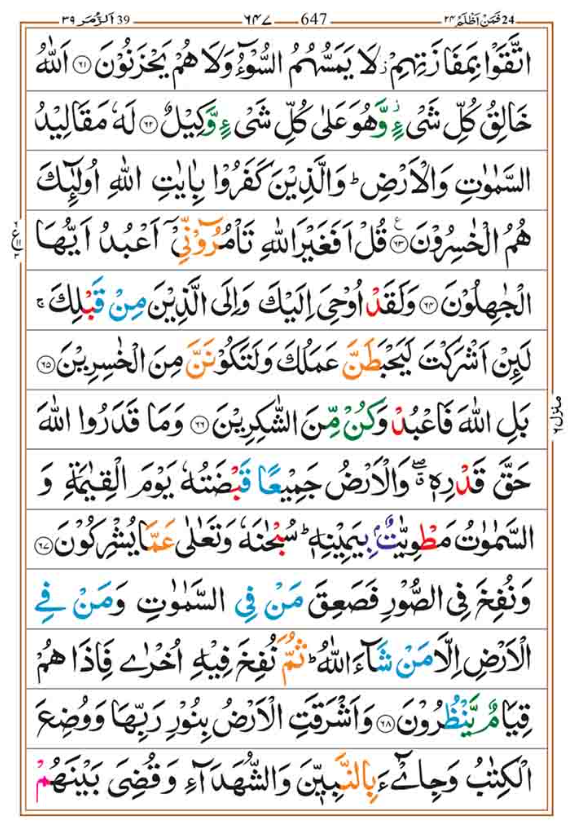 39 اَلزُّمَر ٣٩ ٦٤٧ 647 24 فَمَنْ اَظْلَمُ ٢٤
اتَّقَوْا بِمَفَازَتِهِمْ ز لَا يَمَسُّهُمُ السُّوْٓءُ وَلَا هُمْ يَحْزَنُوْنَ ﴿٦١﴾ اَللّٰهُ
خَالِقُ كُلِّ شَىْءٍ ز وَّهُوَ عَلٰى كُلِّ شَىْءٍ وَّكِيْلٌ ﴿٦٢﴾ لَهٗ مَقَالِيْدُ
السَّمٰوٰتِ وَالْاَرْضِ ؕ وَالَّذِيْنَ كَفَرُوْا بِاٰيٰتِ اللّٰهِ اُولٰٓئِكَ
هُمُ الْخٰسِرُوْنَ ﴿٦٣﴾ ع قُلْ اَفَغَيْرَ اللّٰهِ تَاْمُرُوْٓنِّىْٓ اَعْبُدُ اَيُّهَا
الْجٰهِلُوْنَ ﴿٦٤﴾ وَلَقَدْ اُوْحِىَ اِلَيْكَ وَاِلَى الَّذِيْنَ مِنْ قَبْلِكَ ۚ
لَئِنْ اَشْرَكْتَ لَيَحْبَطَنَّ عَمَلُكَ وَلَتَكُوْنَنَّ مِنَ الْخٰسِرِيْنَ ﴿٦٥﴾
بَلِ اللّٰهَ فَاعْبُدْ وَكُنْ مِّنَ الشّٰكِرِيْنَ ﴿٦٦﴾ وَمَا قَدَرُوا اللّٰهَ
حَقَّ قَدْرِهٖ ۖ وَالْاَرْضُ جَمِيْعًا قَبْضَتُهٗ يَوْمَ الْقِيٰمَةِ وَ
السَّمٰوٰتُ مَطْوِيّٰتٌۢ بِيَمِيْنِهٖ ؕ سُبْحٰنَهٗ وَتَعٰلٰى عَمَّا يُشْرِكُوْنَ ﴿٦٧﴾
وَنُفِخَ فِى الصُّوْرِ فَصَعِقَ مَنْ فِى السَّمٰوٰتِ وَمَنْ فِى
الْاَرْضِ اِلَّا مَنْ شَآءَ اللّٰهُ ؕ ثُمَّ نُفِخَ فِيْهِ اُخْرٰى فَاِذَا هُمْ
قِيَامٌ يَّنْظُرُوْنَ ﴿٦٨﴾ وَاَشْرَقَتِ الْاَرْضُ بِنُوْرِ رَبِّهَا وَوُضِعَ
الْكِتٰبُ وَجِاىْٓءَ بِالنَّبِيّٖنَ وَالشُّهَدَآءِ وَقُضِىَ بَيْنَهُمْ
منزل ٦